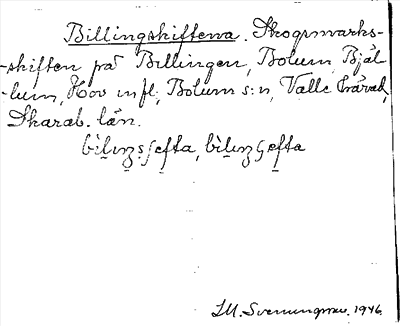 Billingskiftena. Skogsmarks-
-skiften på Billingen, Bolum, Bjäl
-bum, Hov m fl, Bolum s:n, Valle härad,
Skarab. län.
bìlıŋsʃefta, bìlıŋçefta
I.M. Svenungsson. 1946.